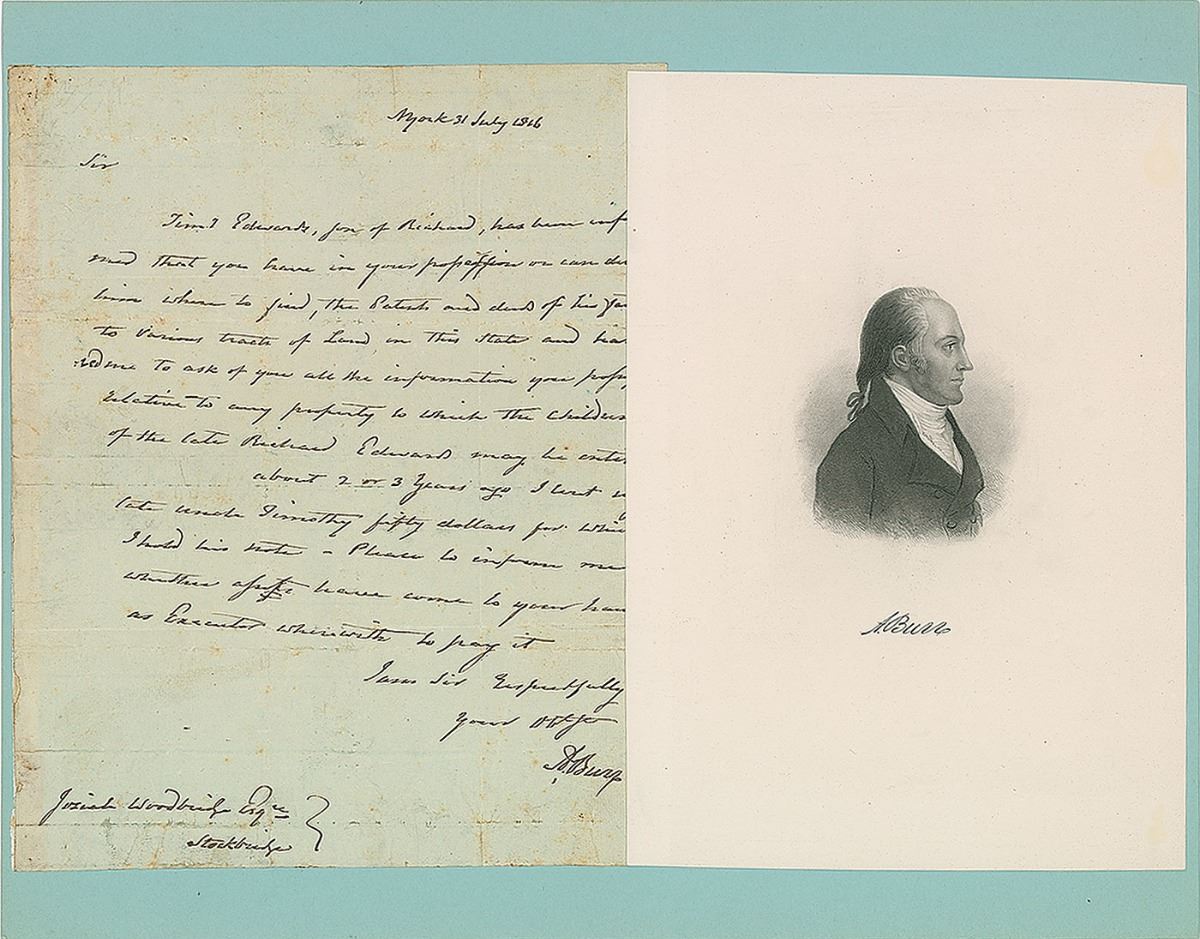 NYork 31 July 1816
Sir
Timy Edwards, son of Richard, has been inf
med that you have in your possession or can di
him where to find, the Patents and deeds of his
to various tracts of Land in this State and has
me to ask of you all the information you poss
relative to any property to which the children
of the late Richard Edwards may be enti
about 2 or 3 Years ago I lent
late uncle Timothy fifty dollars for whic
I hold his note - Please to inform me
whether assets have come to your han
as Executor wherewith to pay it
I am Sir respectfully
Your Obt St
A. Burr
Josiah Woodbridge Esqre
Stockbridge
A. Burr